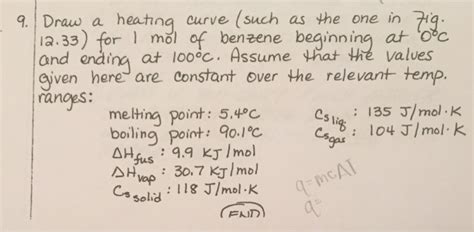 9. Draw a heating curve (such as the one in Fig.
12.33) for 1 mol of benzene beginning at 0°C
and ending at 100°C. Assume that the values
given here are constant over the relevant temp.
ranges:
melting point: 5.4°C
boiling point: 90.1°C
ΔHfus : 9.9 KJ/mol
ΔHvap : 30.7 KJ/mol
Cs solid : 118 J/mol·K
Cs liq : 135 J/mol·K
Cs gas : 104 J/mol·K
q=mcΔT
q=
END